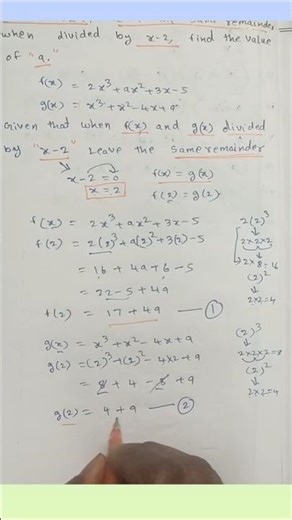 same remainder
when divided by x-2, find the value
of "a."
f(x) = 2x³ + ax² + 3x - 5
g(x) = x³ + x² - 4x + a
Given that when f(x) and g(x) divided
by "x-2" Leave the same remainder
x - 2 = 0
x = 2
f(x) = g(x)
f(2) = g(2)
f(x) = 2x³ + ax² + 3x - 5
f(2) = 2(2)³ + a(2)² + 3(2) - 5
= 16 + 4a + 6 - 5
= 22 - 5 + 4a
f(2) = 17 + 4a — ①
2(2)³
2×2×2
2×8=16
(2)²
2×2=4
g(x) = x³ + x² - 4x + a
g(2) = (2)³ + (2)² - 4×2 + a
= 8 + 4 - 8 + a
g(2) = 4 + a — ②
(2)³
2×2×2=8
(2)²
2×2=4